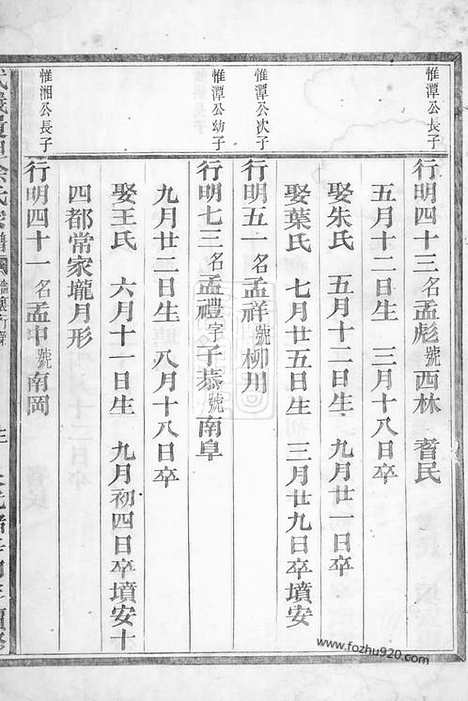 惟潭公長子
行明四十三名孟彪號西林 耆民
五月十二日生 三月十八日卒
娶朱氏 五月十二日生 九月廿一日卒
娶葉氏 七月廿五日生 三月廿九日卒墳安
惟潭公次子
行明五一名孟祥號柳川
惟潭公幼子
行明七三名孟禮字子恭號南阜
九月廿二日生 八月十八日卒
娶王氏 六月十一日生 九月初四日卒墳安十
四都常家壠月形
惟湘公長子
行明四十一名孟申號南岡
www.fozhu920.com